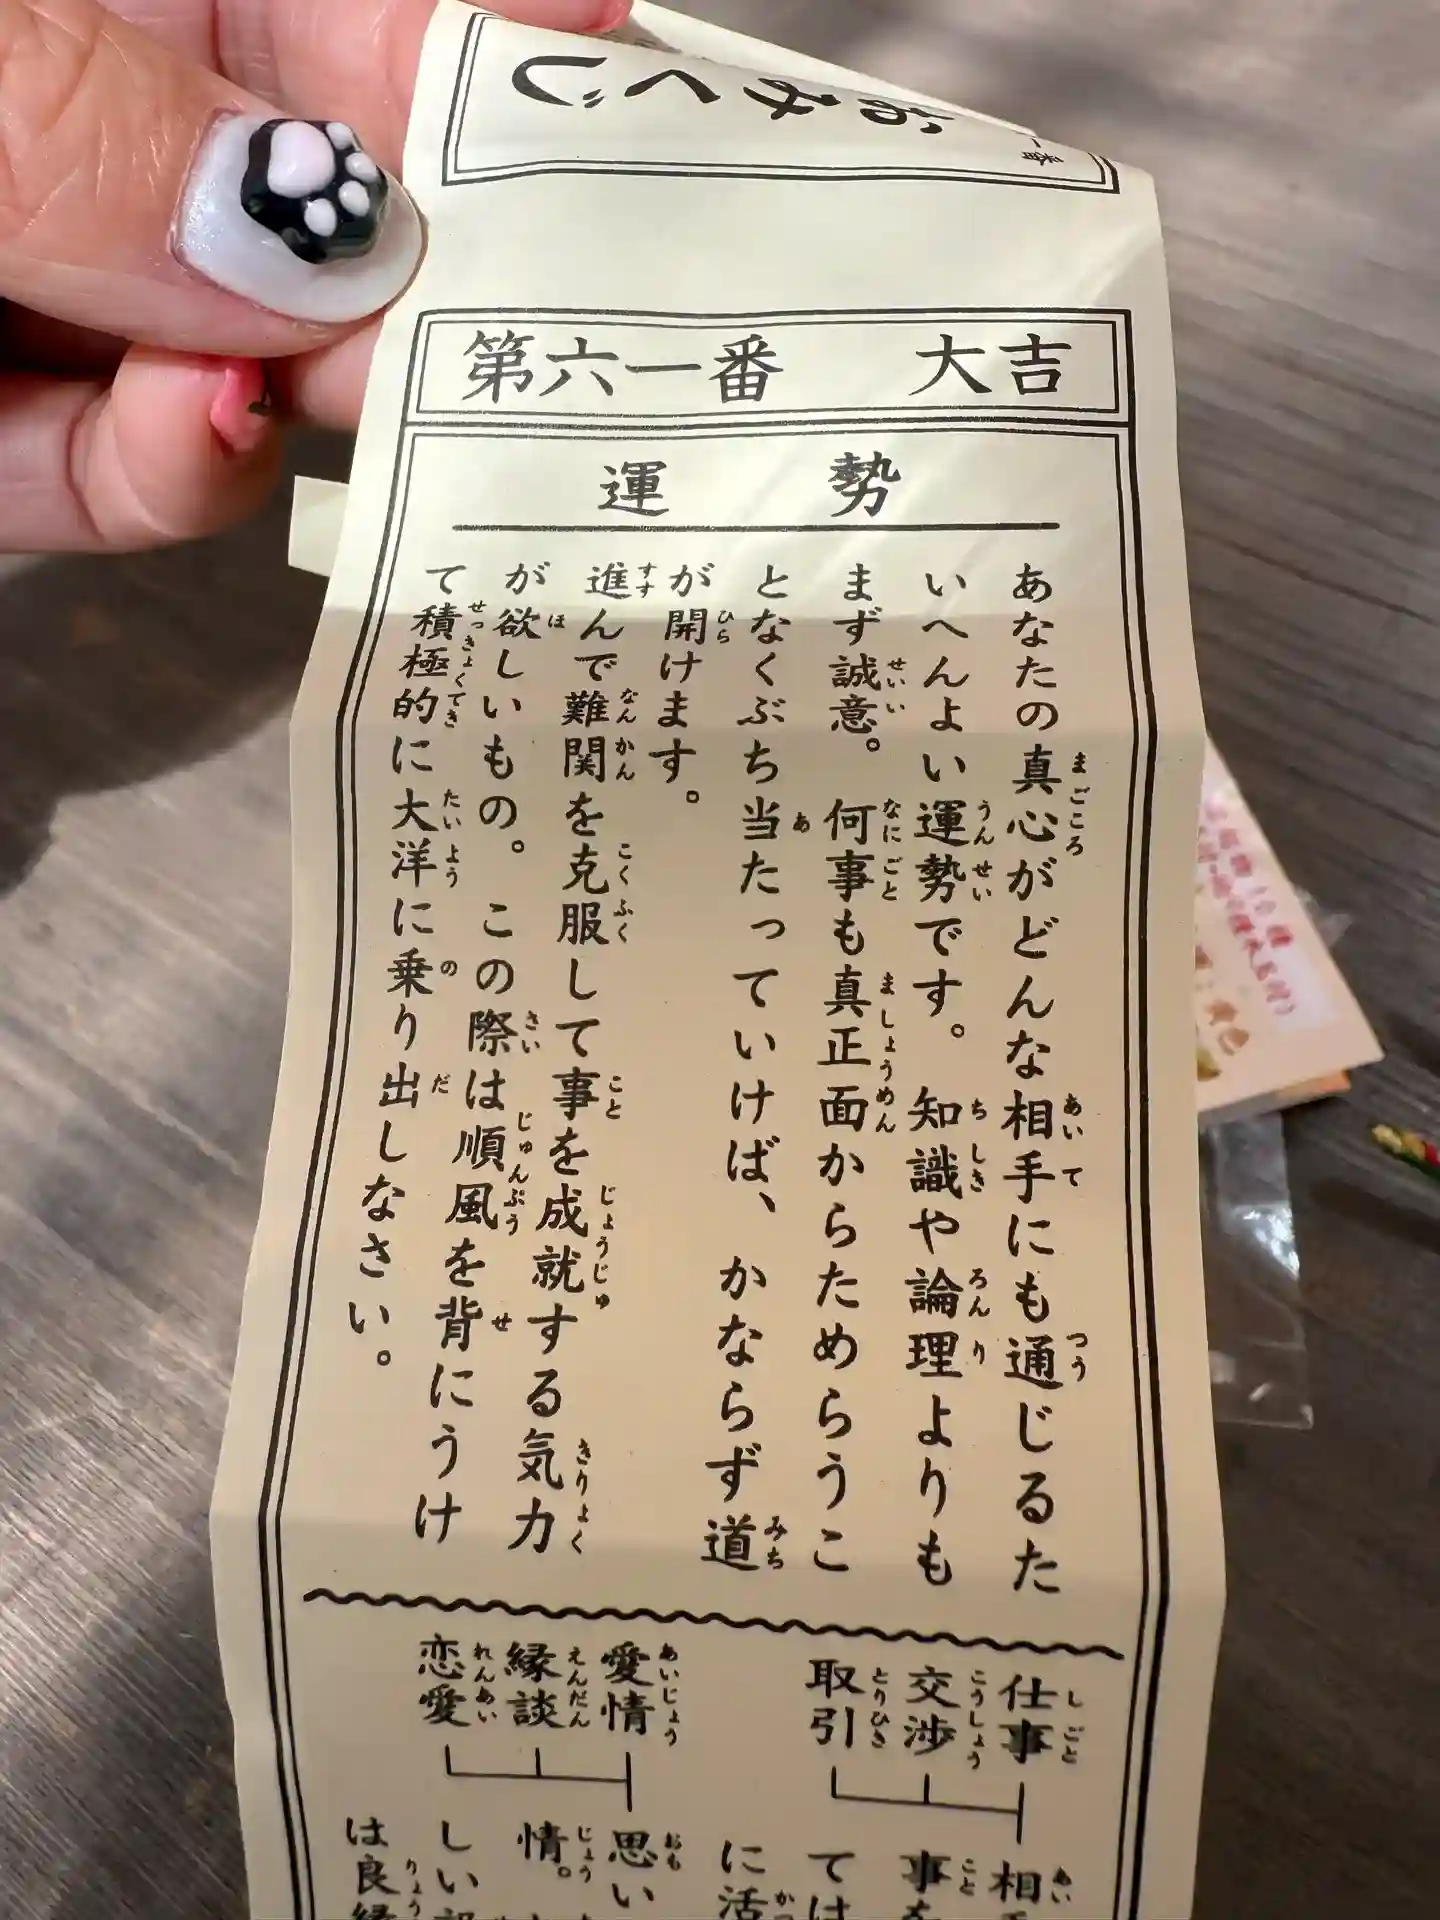 おみくじ
第六一番 大吉
運勢
あなたの真心がどんな相手にも通じるた
いへんよい運勢です。知識や論理よりも
まず誠意。何事も真正面からためらうこ
となくぶち当たっていけば、かならず道
が開けます。
進んで難関を克服して事を成就する気力
が欲しいもの。この際は順風を背にうけ
て積極的に大洋に乗り出しなさい。
仕事
交渉
取引
相
事を
ては
に活
愛情
縁談
恋愛
思い
情。
しい
は良縁